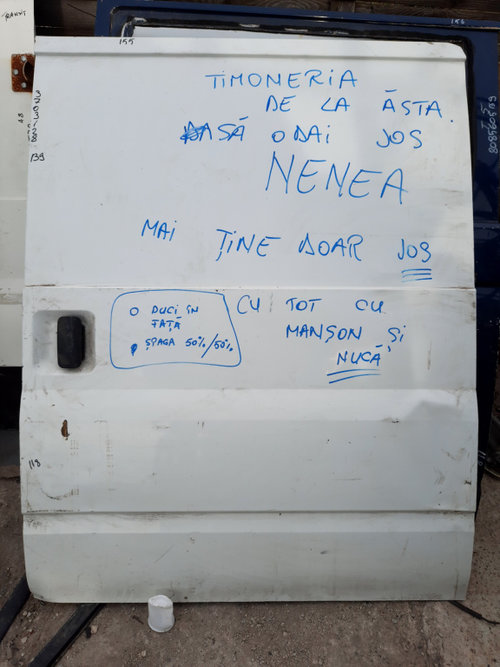 155
156
139
118
TIMONERIA
DE LA ĂSTA.
SĂ O DAI JOS
NENEA
MAI ȚINE DOAR JOS
CU TOT CU
MANȘON ȘI
NUCĂ
O DUCI ÎN
FAȚĂ
ȘPAGA 50%/50%